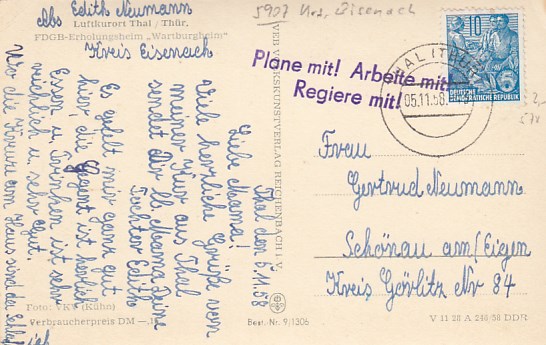 Abs Edith Neumann
Luftkurort Thal / Thür.
FDGB-Erholungsheim „Wartburgheim"
Kreis Eisenach
5907 Krs. Eisenach
Plane mit! Arbeite mit!
Regiere mit!
05.11.58
10
DEUTSCHE
DEMOKRATISCHE REPUBLIK
Thal den 5.11.58
Liebe Mama!
Viele herzliche Grüße von
meiner Kur aus Thal
sendet Dir lb Mama Deine
Tochter Edith
Es gefält mir ganz gut
hier, die Gegend ist herlich
Essen u. Trinken ist sehr
reichlich u sehr gut.
Wo die Kreuze am Haus sind da
Frau
Gertrud Neumann
Schönau am/Eigen
Kreis Görlitz Nr 84
VEB VOLKSKUNSTVERLAG REICHENBACH i. V.
Foto: VKV (Kühn)
Verbraucherpreis DM
Best.-Nr. 9/1306
V 11 28 A 246/58 DDR